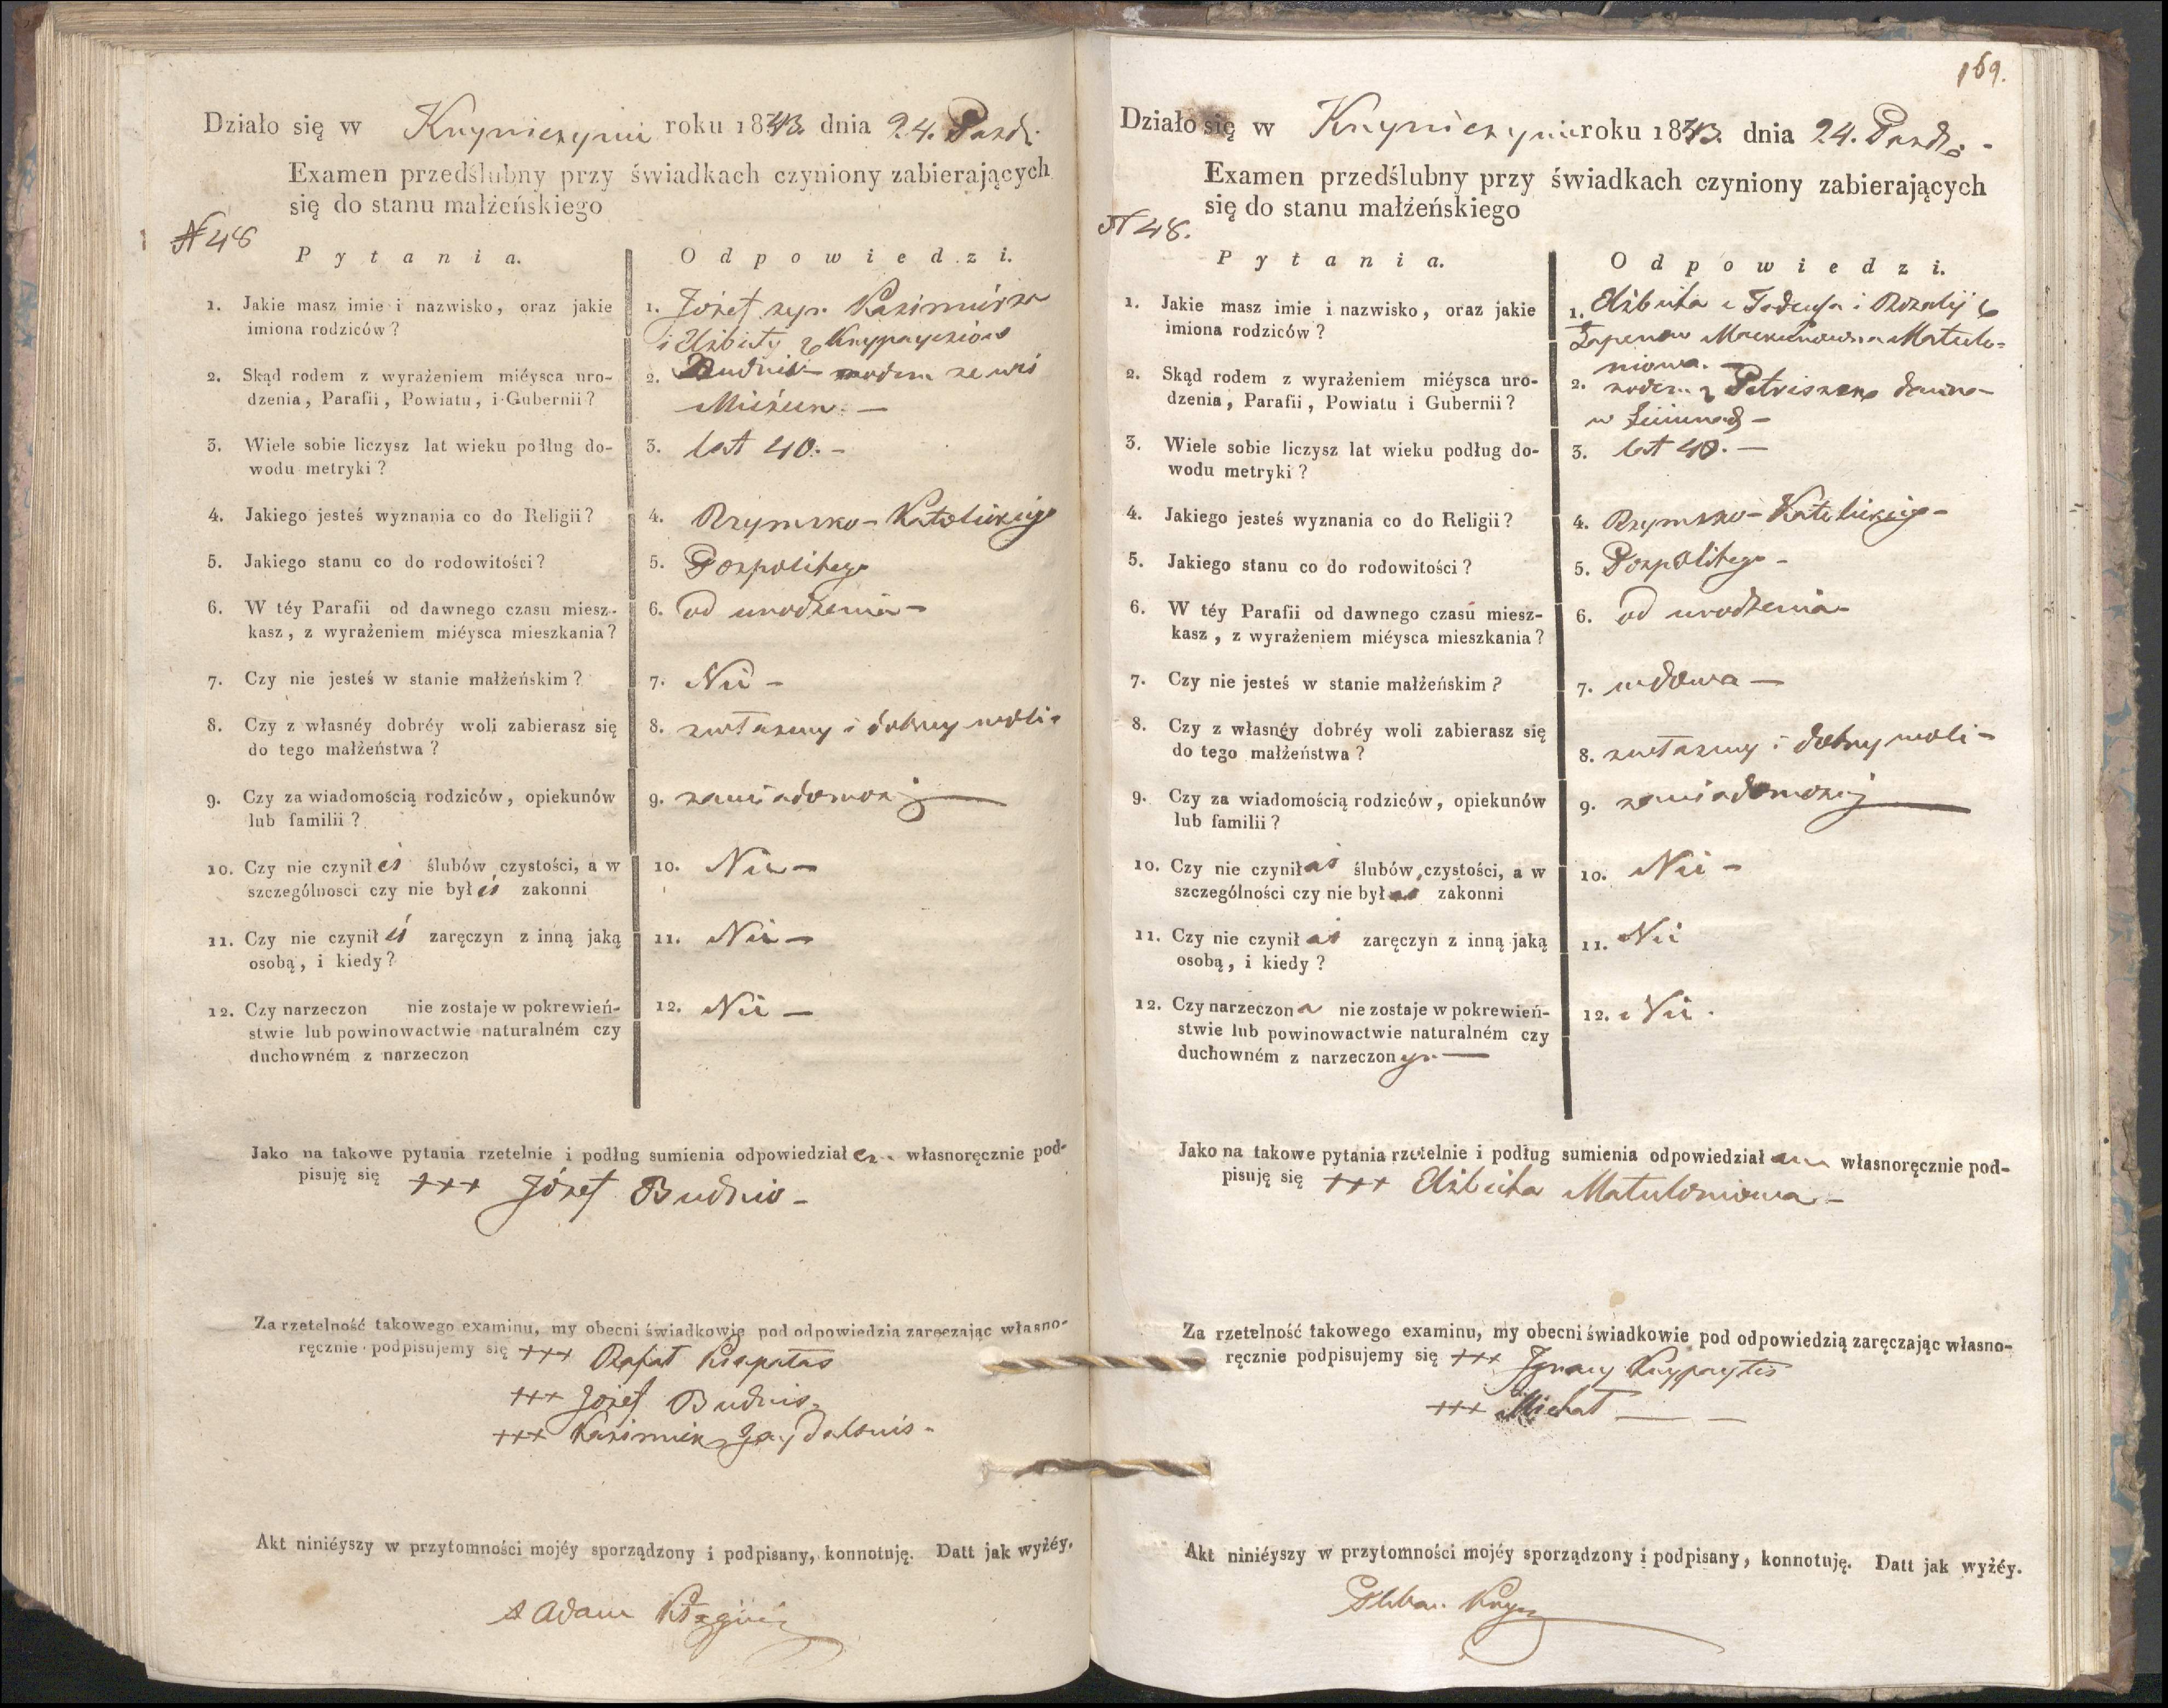 Działo się w Knyniczynie roku 1843. dnia 24. Paźdź.
Examen przedślubny przy świadkach czyniony zabierających
się do stanu małżeńskiego
N 48
Pytania.
Odpowiedzi.
1. Jakie masz imie i nazwisko, oraz jakie
imiona rodziców?
1. Józef syn Kazimierza
i Elżbiety z
2. Skąd rodem z wyrażeniem miéysca uro-
dzenia, Parafii, Powiatu, i Gubernii?
2. Budnis rodem ze wsi
3. Wiele sobie liczysz lat wieku podług do-
wodu metryki?
3. lat 40. -
4. Jakiego jesteś wyznania co do Religii?
4. Rzymsko-Katolickiego
5. Jakiego stanu co do rodowitości?
5. Pospolitego
6. W téy Parafii od dawnego czasu miesz-
kasz, z wyrażeniem miéysca mieszkania?
6. od urodzenia -
7. Czy nie jesteś w stanie małżeńskim?
7. Nie -
8. Czy z własnéy dobréy woli zabierasz się
do tego małżeństwa?
8. zwłasney i dobrey woli -
9. Czy za wiadomością rodziców, opiekunów
lub familii?
9. zawiadomością
10. Czy nie czynił eś ślubów czystości, a w
szczególnosci czy nie był eś zakonni
10. Nie -
11. Czy nie czynił eś zaręczyn z inną jaką
osobą, i kiedy?
11. Nie -
12. Czy narzeczon nie zostaje w pokrewień-
stwie lub powinowactwie naturalném czy
duchowném z narzeczon
12. Nie -
Jako na takowe pytania rzetelnie i podług sumienia odpowiedział em własnoręcznie pod-
pisuję się +++ Józef Budnis -
Za rzetelność takowego examinu, my obecni świadkowie pod odpowiedzia zaręczając własno-
ręcznie podpisujemy się +++ Rafał
+++ Józef Budnis
+++ Kazimierz
Akt niniéyszy w przytomności mojéy sporządzony i podpisany, konnotuję. Datt jak wyżéy.
X Adam
169.
Działo się w Knyniczynie roku 1843. dnia 24. Paźdź. -
Examen przedślubny przy świadkach czyniony zabierających
się do stanu małżeńskiego
N 48.
Pytania.
Odpowiedzi.
1. Jakie masz imie i nazwisko, oraz jakie
imiona rodziców?
1. Elżbieta c Tadeusza i Rozalij z
Matulo=
niowa. -
2. Skąd rodem z wyrażeniem miéysca uro-
dzenia, Parafii, Powiatu i Gubernii?
2. rodem z
3. Wiele sobie liczysz lat wieku podług do-
wodu metryki?
3. lat 40. -
4. Jakiego jesteś wyznania co do Religii?
4. Rzymsko-Katolickiego -
5. Jakiego stanu co do rodowitości?
5. Pospolitego -
6. W téy Parafii od dawnego czasu miesz-
kasz, z wyrażeniem miéysca mieszkania?
6. od urodzenia -
7. Czy nie jesteś w stanie małżeńskim?
7. wdowa -
8. Czy z własnéy dobréy woli zabierasz się
do tego małżeństwa?
8. zwłasney i dobrey woli -
9. Czy za wiadomością rodziców, opiekunów
lub familii?
9. zawiadomością
10. Czy nie czynił aś ślubów czystości, a w
szczególności czy nie był aś zakonni
10. Nie -
11. Czy nie czynił aś zaręczyn z inną jaką
osobą, i kiedy?
11. Nie
12. Czy narzeczon a nie zostaje w pokrewień-
stwie lub powinowactwie naturalném czy
duchowném z narzeczon ym -
12. Nie.
Jako na takowe pytania rzetelnie i podług sumienia odpowiedział am własnoręcznie pod-
pisuję się +++ Elżbieta Matuloniowa -
Za rzetelność takowego examinu, my obecni świadkowie pod odpowiedzią zaręczając własno-
ręcznie podpisujemy się +++ Ignacy
+++ Michał
Akt niniéyszy w przytomności mojéy sporządzony i podpisany, konnotuję. Datt jak wyżéy.
Pleban